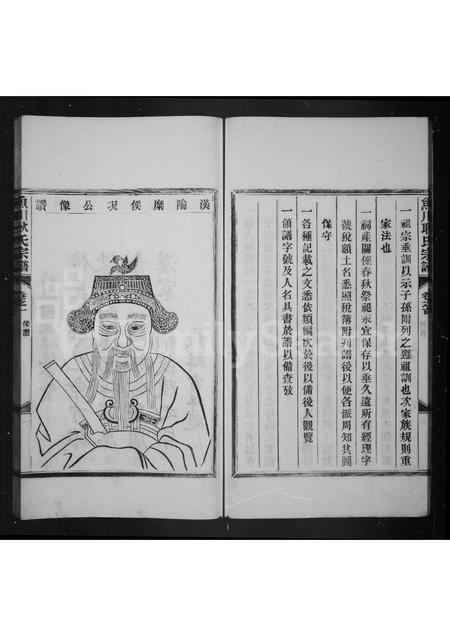 一祖宗垂訓以示子孫附列之遵祖訓也次家族規則重
家法也
一祠產關係春秋祭祀永宜保存以垂久遠所有經理字
號稅額土名悉照稅簿附列譜後以便各派周知共圖
保守
一各種記載之文悉依類編次於後以備後人觀覽
一頒譜字號及人名具書於譜以備查攷
魚川耿氏宗譜
漢隃糜侯況公像讚
魚川耿氏宗譜
卷之一
像讚